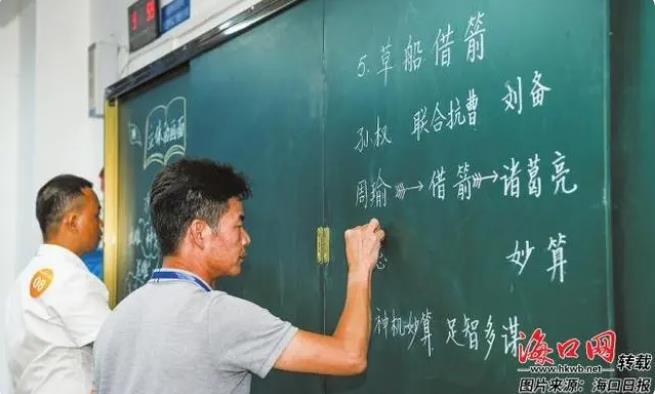 5.草船借箭
孙权 联合抗曹 刘备
周瑜 → 借箭 → 诸葛亮
妙算
神机妙算 足智多谋
08
海口网
www.hkwb.net
转载
图片来源：海口日报